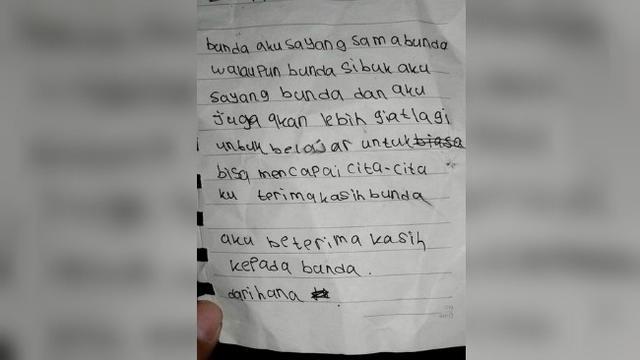 bunda aku sayang sama bunda
walaupun bunda sibuk aku
sayang bunda dan aku
juga akan lebih giat lagi
untuk belajar untuk biasa
bisa mencapai cita-cita
ku terima kasih bunda
aku beterima kasih
kepada bunda.
dari hana